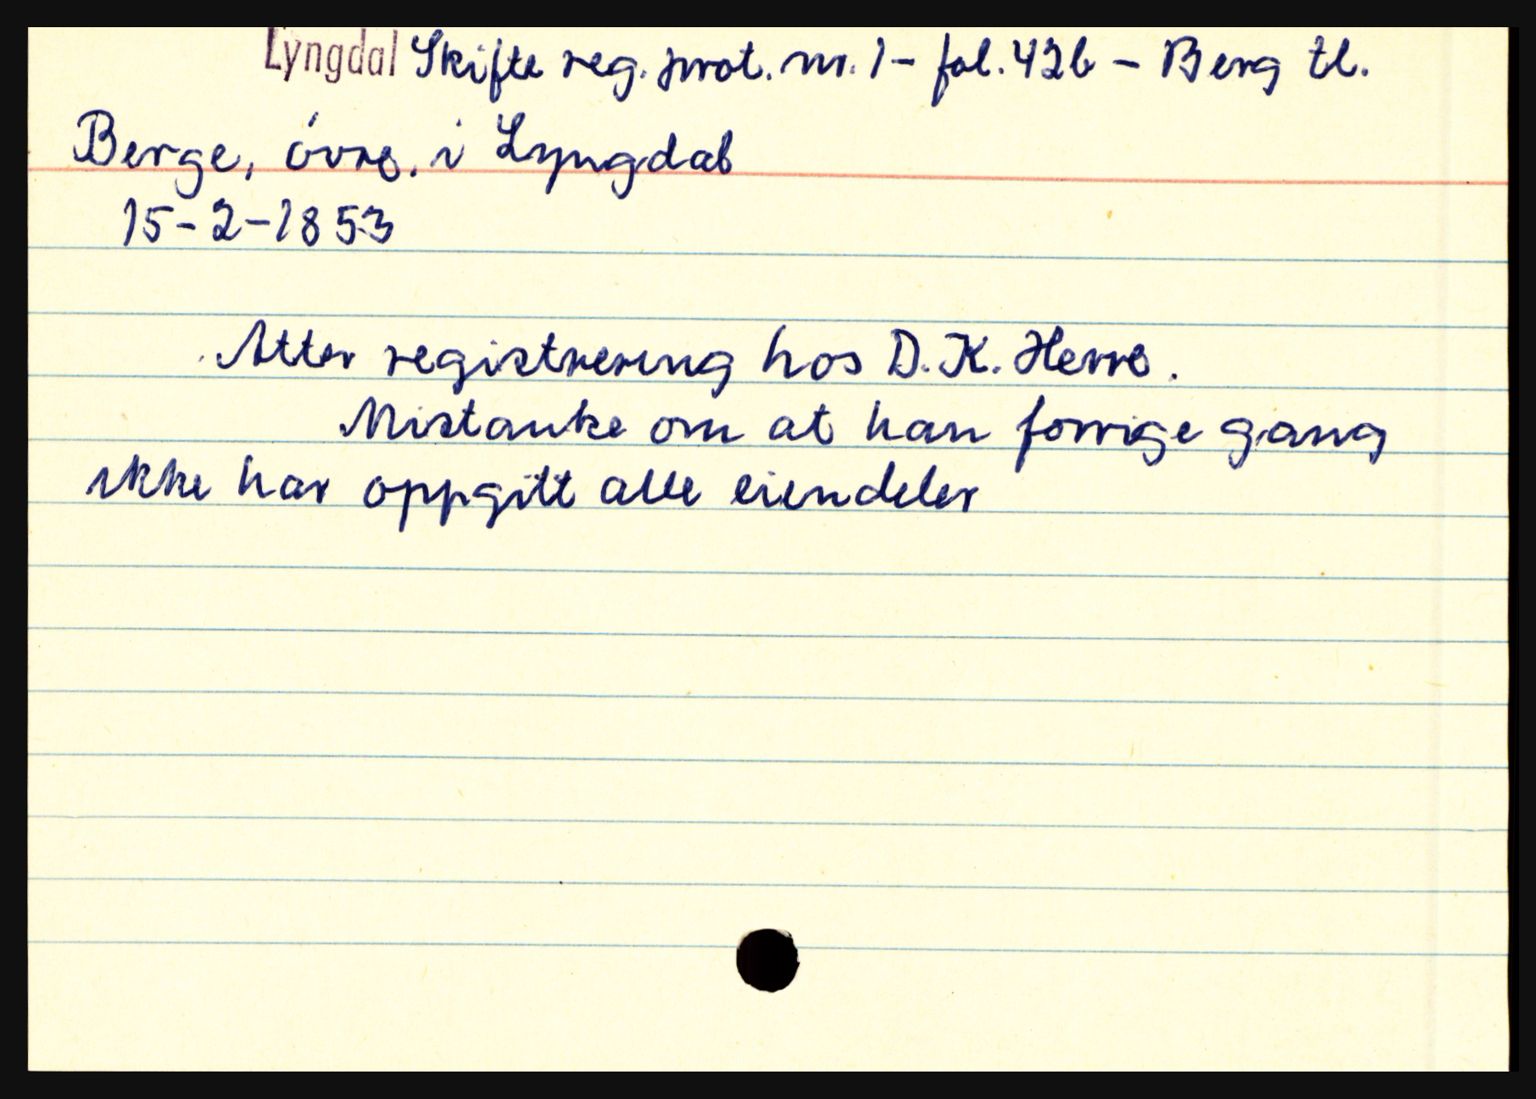 Lyngdal Skifte reg. prot. nr. 1 - fol. 42b - Berg tl.
Berge, óvre, i Lyngdal
15-2-1853
Atter registrering hos D. K. Herre.
Mistanke om at han forrige gang
ikke har oppgitt alle eiendeler